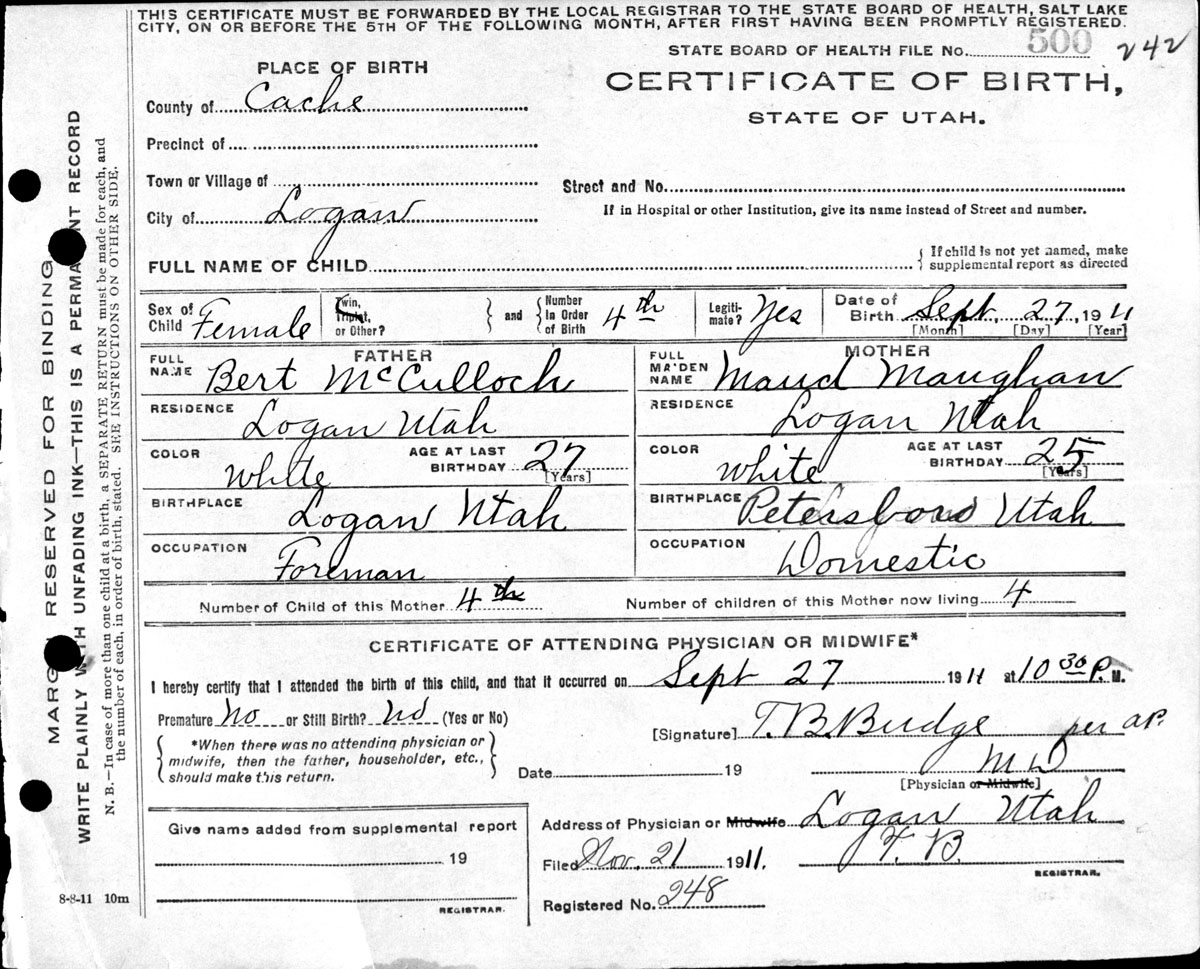 THIS CERTIFICATE MUST BE FORWARDED BY THE LOCAL REGISTRAR TO THE STATE BOARD OF HEALTH, SALT LAKE
CITY, ON OR BEFORE THE 5TH OF THE FOLLOWING MONTH, AFTER FIRST HAVING BEEN PROMPTLY REGISTERED.
STATE BOARD OF HEALTH FILE No. 500 242
PLACE OF BIRTH
CERTIFICATE OF BIRTH,
STATE OF UTAH.
County of Cache
Precinct of
Town or Village of
Street and No.
City of Logan
If in Hospital or other Institution, give its name instead of Street and number.
FULL NAME OF CHILD
{ If child is not yet named, make
supplemental report as directed
Sex of Child Female
Twin, Triplet, or Other?
} and { Number In Order of Birth 4th
Legiti-mate? Yes
Date of Birth Sept. 27, 1911
[Month] [Day] [Year]
FATHER
FULL NAME Bert McCulloch
RESIDENCE Logan Utah
COLOR White AGE AT LAST BIRTHDAY 27
[Years]
BIRTHPLACE Logan Utah
OCCUPATION Foreman
MOTHER
FULL MAIDEN NAME Maud Maughan
RESIDENCE Logan Utah
COLOR White AGE AT LAST BIRTHDAY 25
[Years]
BIRTHPLACE Petersboro Utah
OCCUPATION Domestic
Number of Child of this Mother 4th Number of children of this Mother now living 4
CERTIFICATE OF ATTENDING PHYSICIAN OR MIDWIFE*
I hereby certify that I attended the birth of this child, and that it occurred on Sept 27 1911 at 10 30 P. M.
Premature No or Still Birth? No (Yes or No)
{ *When there was no attending physician or
midwife, then the father, householder, etc.,
should make this return. }
[Signature] T. B. Budge per A.P.
Date 19 M D
[Physician or Midwife]
Address of Physician or Midwife Logan Utah
Filed Nov. 21 1911. F. B.
REGISTRAR.
Registered No. 248
Give name added from supplemental report
19
REGISTRAR.
8-8-11 10m
MARGIN RESERVED FOR BINDING
WRITE PLAINLY WITH UNFADING INK—THIS IS A PERMANENT RECORD
N. B.—In case of more than one child at a birth, a SEPARATE RETURN must be made for each, and
the number of each, in order of birth, stated. SEE INSTRUCTIONS ON OTHER SIDE.